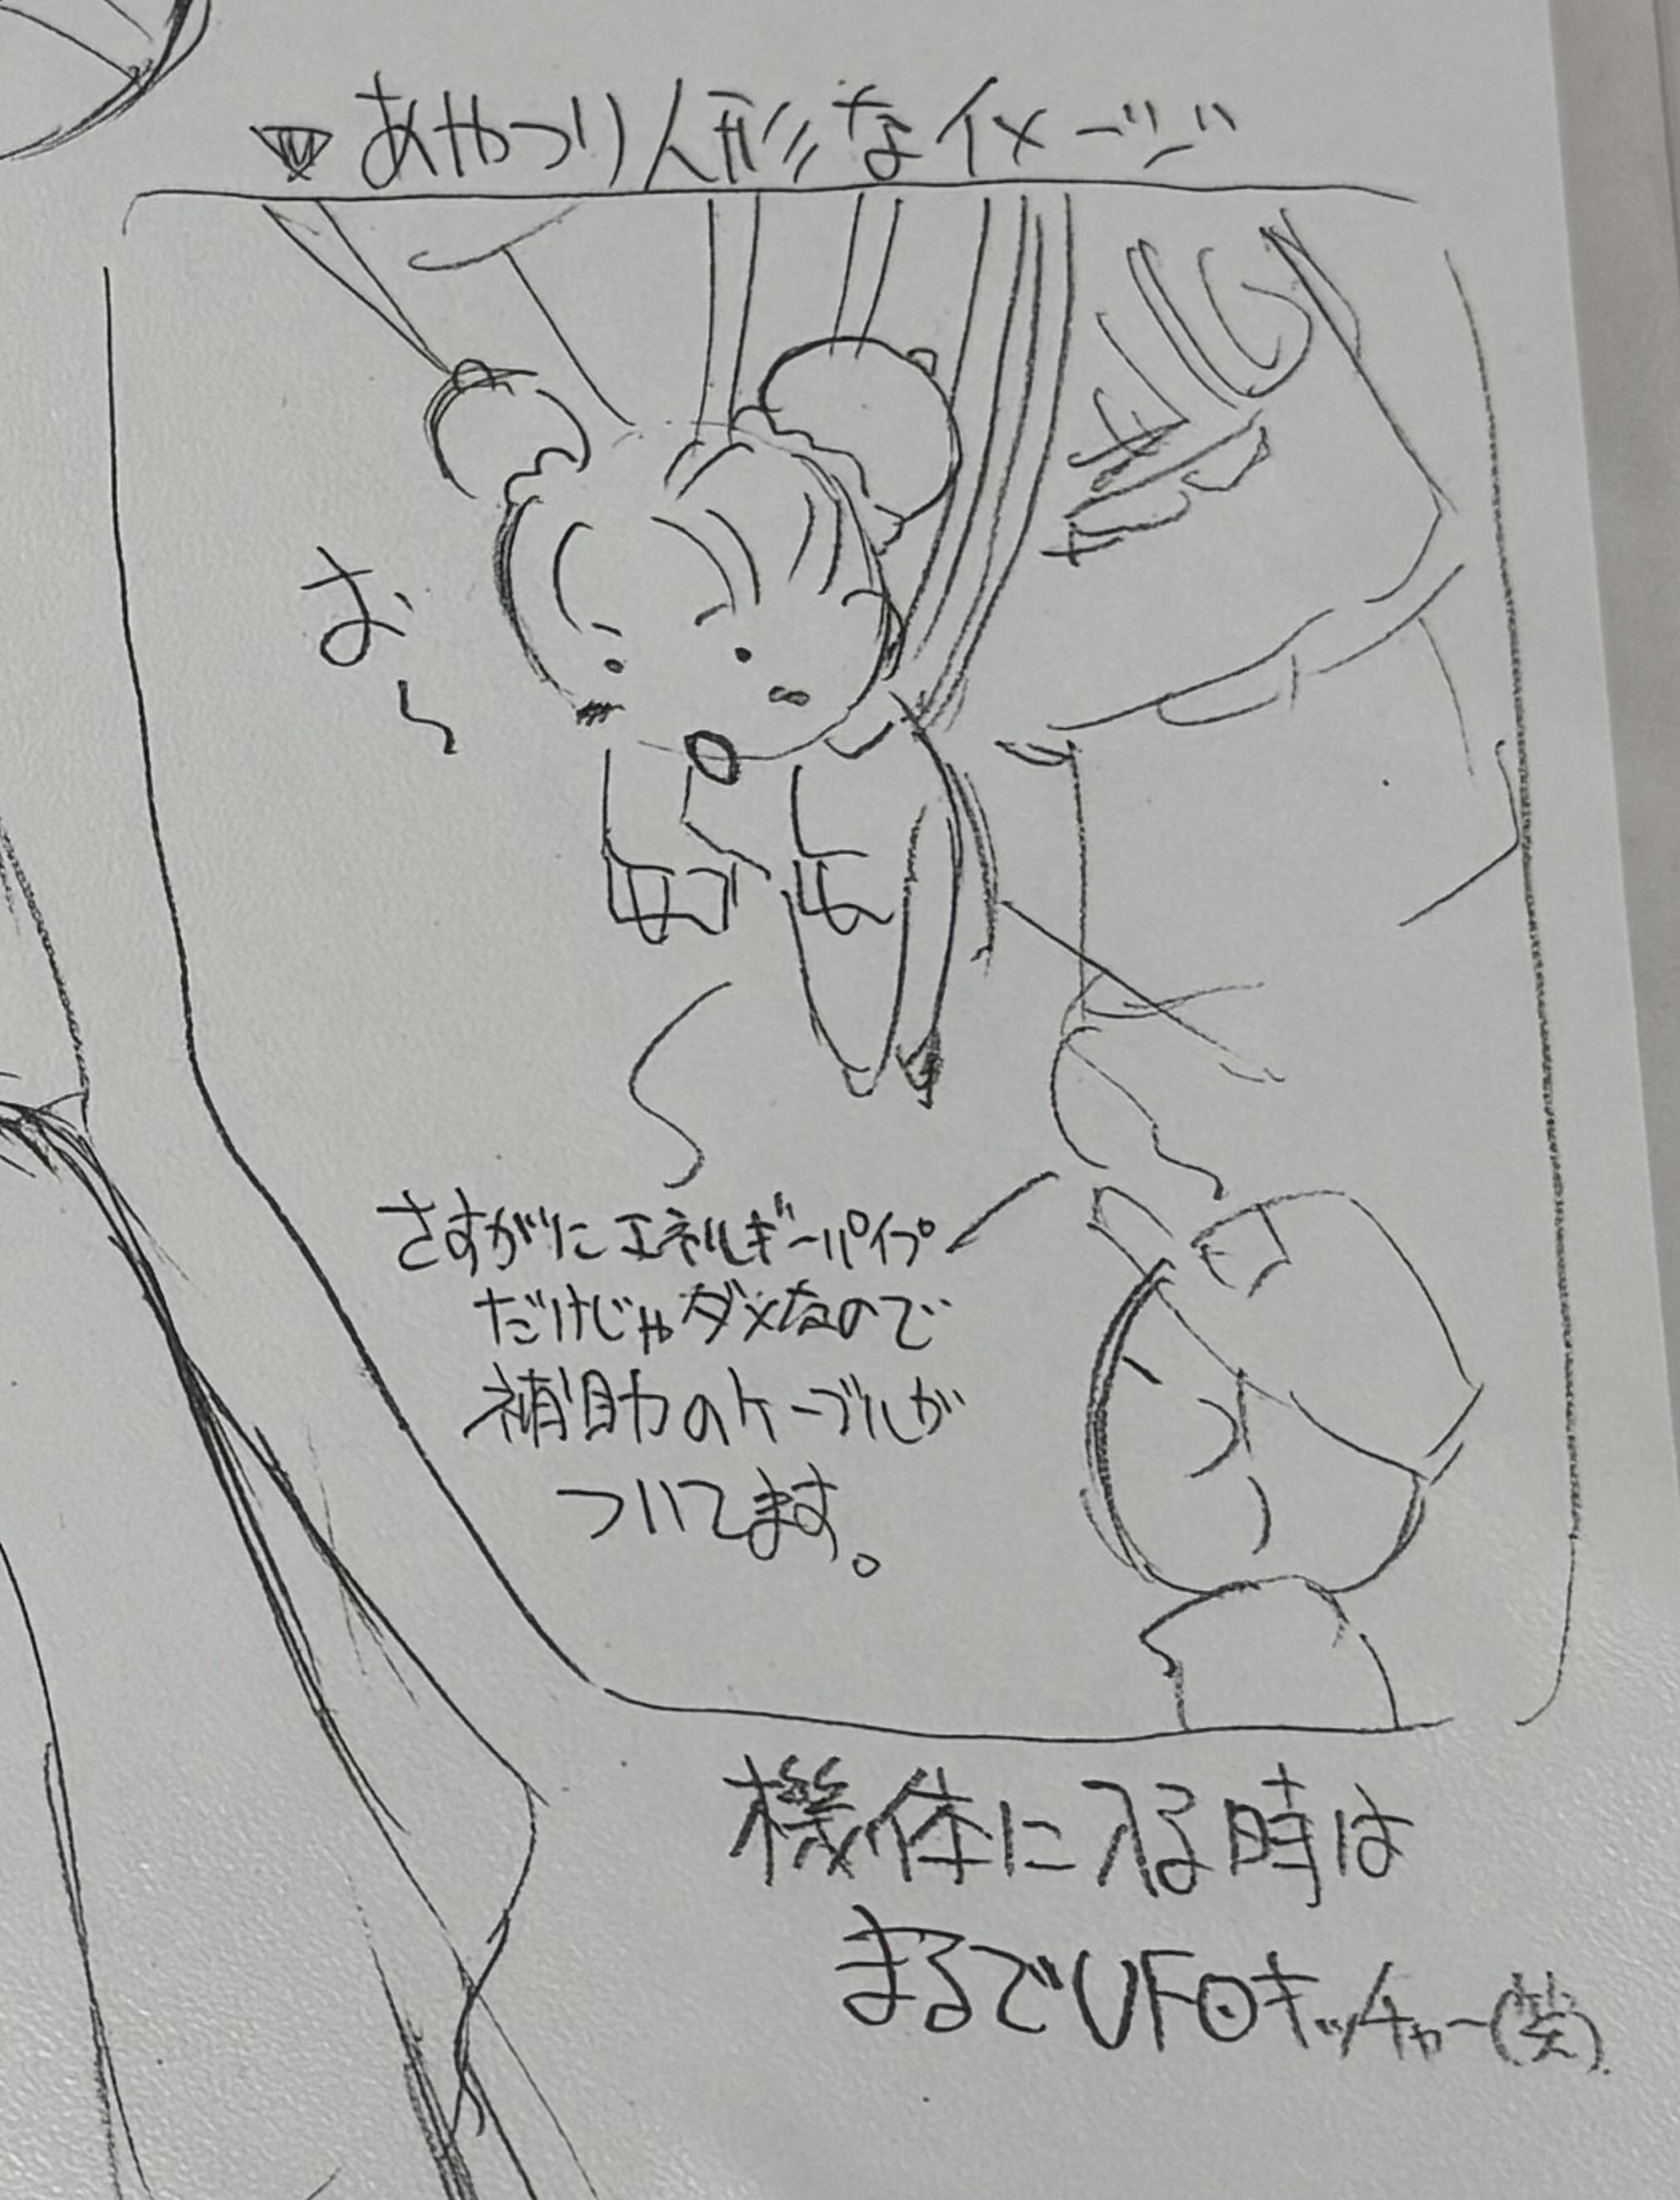 ▼あやつり人形なイメージ
お〜
さすがにエネルギーパイプ
だけじゃダメなので
補助のケーブルが
ついてます。
機体に入る時は
まるでUFOキャッチャー(笑).